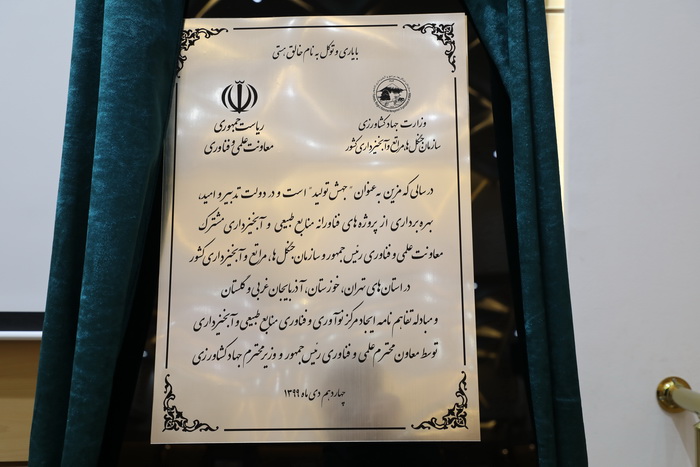 با یاری و توکل به نام خالق هستی
ریاست جمهوری
معاونت علمی و فناوری
وزارت جهاد کشاورزی
سازمان جنگل ها، مراتع و آبخیزداری کشور
در سالی که مزین به عنوان "جهش تولید" است و در دولت تدبیر و امید،
بهره برداری از پروژه های فناورانه منابع طبیعی و آبخیزداری مشترک
معاونت علمی و فناوری رئیس جمهور و سازمان جنگل ها، مراتع و آبخیزداری کشور
در استان های تهران، خوزستان، آذربایجان غربی و گلستان
و مبادله تفاهم نامه ایجاد مرکز نوآوری و فناوری منابع طبیعی و آبخیزداری
توسط معاون محترم علمی و فناوری رئیس جمهور و وزیر محترم جهاد کشاورزی
چهاردهم دی ماه ۱۳۹۹